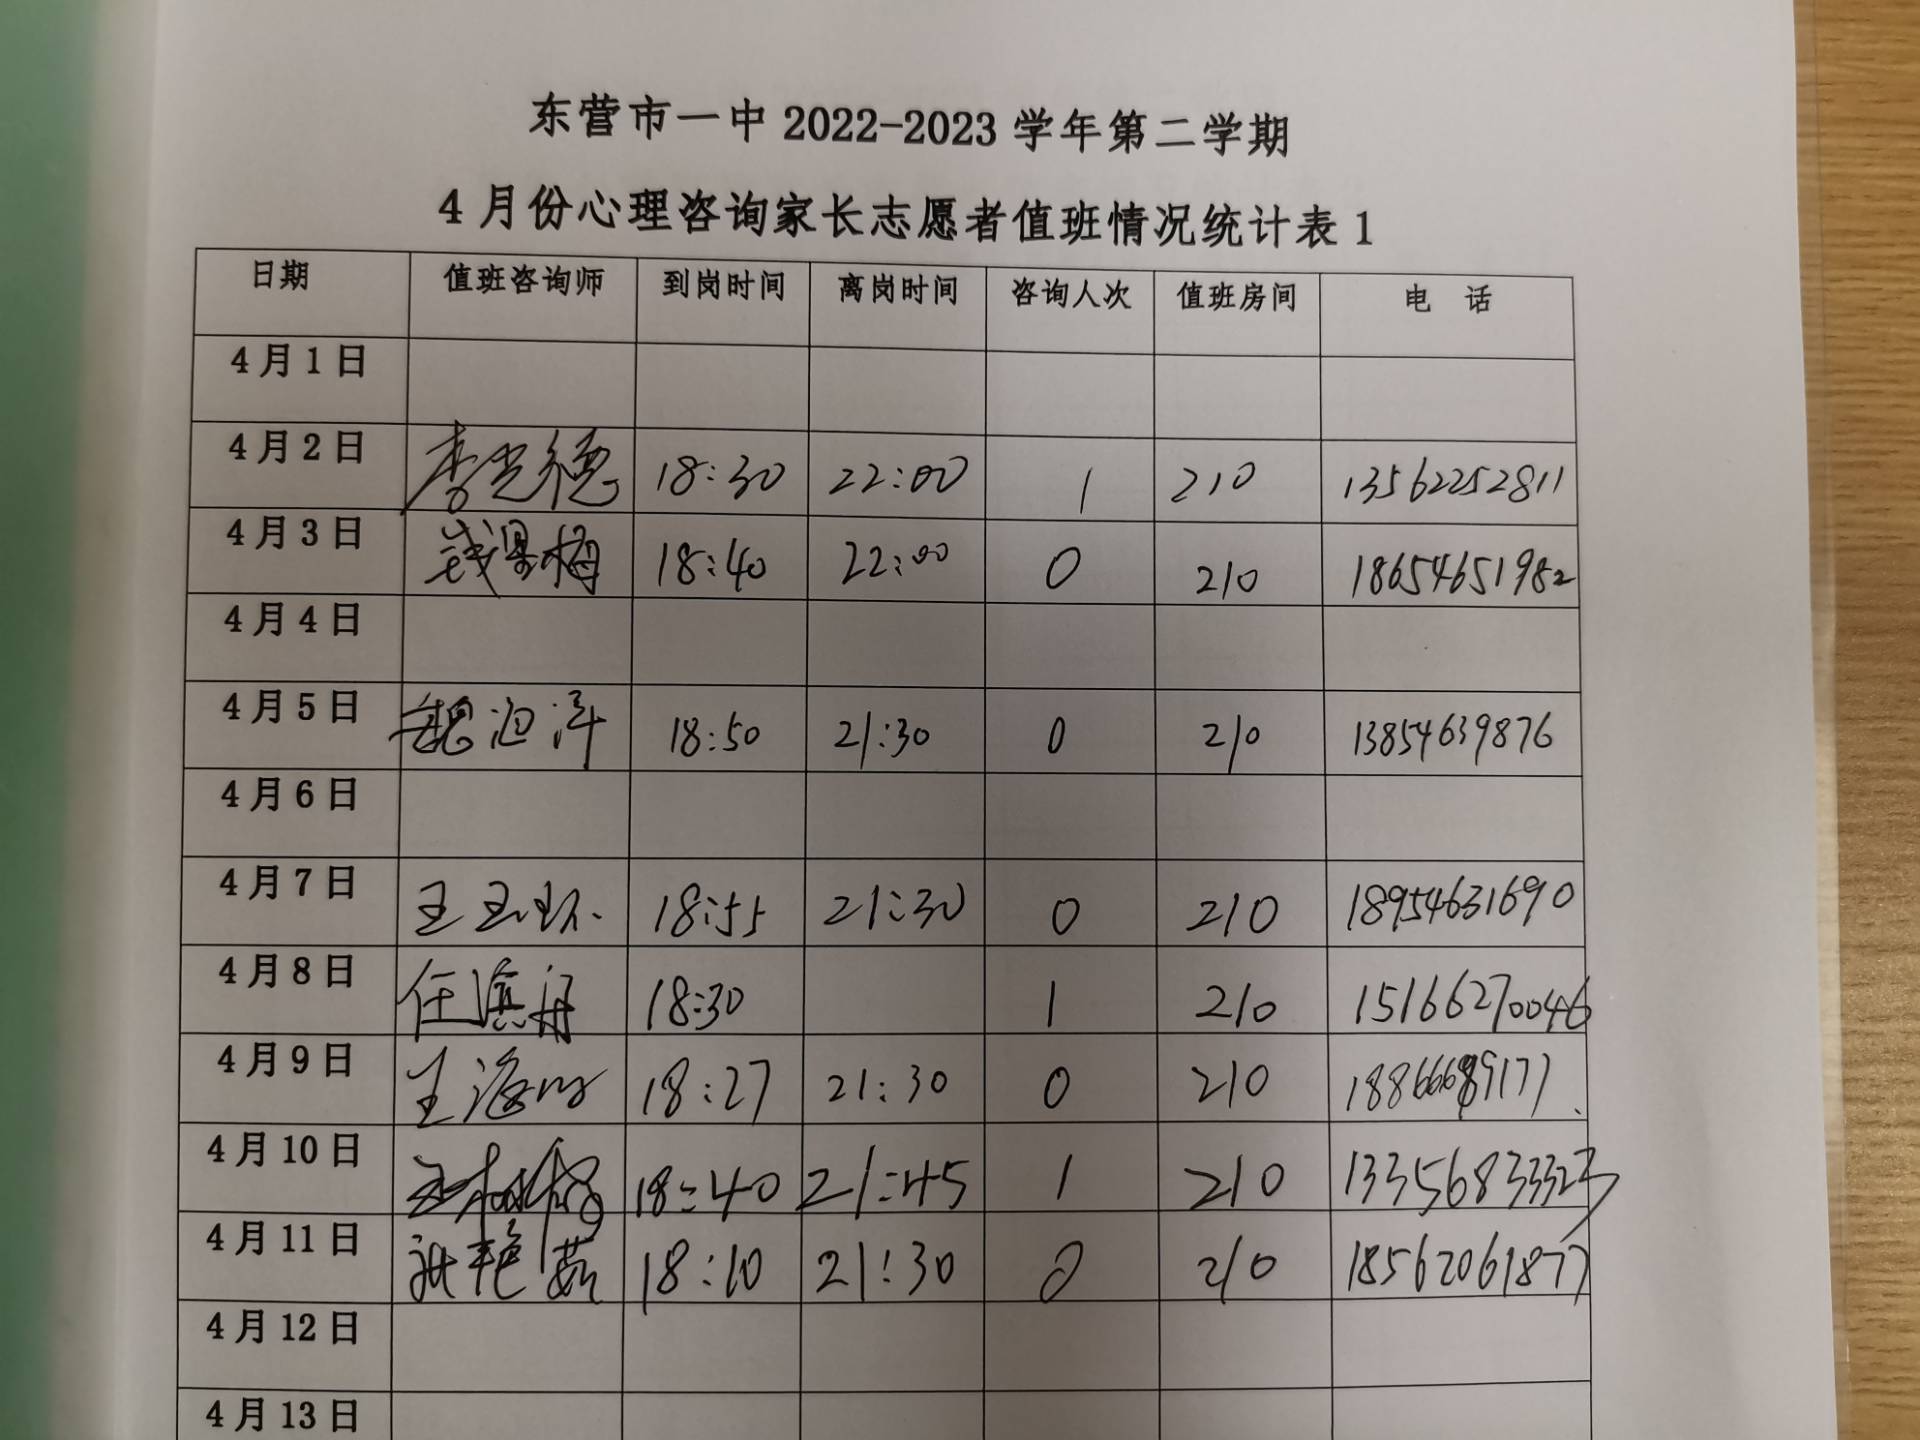 东营市一中 2022-2023 学年第二学期
4 月份心理咨询家长志愿者值班情况统计表 1
日期 值班咨询师 到岗时间 离岗时间 咨询人次 值班房间 电 话
4 月 1 日
4 月 2 日 李光德 18:30 22:00 1 210 13562252811
4 月 3 日 钱果梅 18:40 22:00 0 210 18654651982
4 月 4 日
4 月 5 日 18:50 21:30 0 210 13854639876
4 月 6 日
4 月 7 日 王玉环 18:55 21:30 0 210 18954631690
4 月 8 日 18:30 1 210 15166270046
4 月 9 日 18:27 21:30 0 210
4 月 10 日 18:40 21:45 1 210 13356833323
4 月 11 日 张艳茹 18:10 21:30 0 210 18562061877
4 月 12 日
4 月 13 日